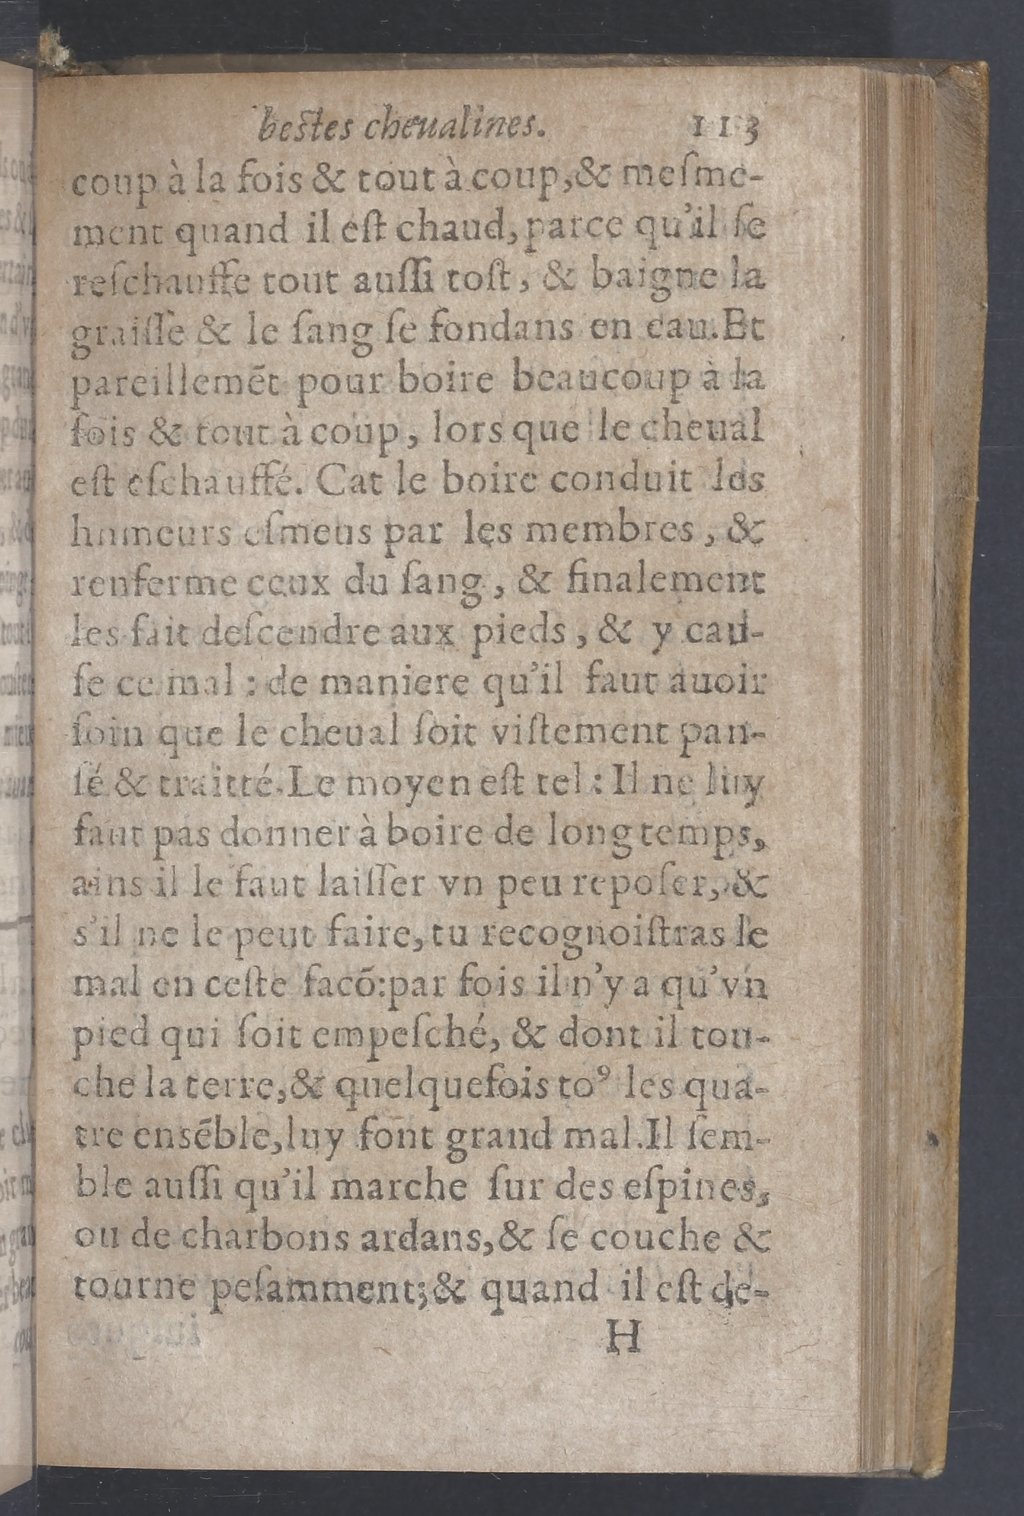 bestes cheualines. 113
coup à la fois & tout à coup,& meſme-
ment quand il eſt chaud, parce qu'il ſe
reſchauffe tout auſſi toſt, & baigne la
graiſſe & le ſang ſe fondans en eau.Et
pareillemẽt pour boire beaucoup à la
fois & tout à coup, lors que le cheual
eſt eſchauffé. Cat le boire conduit les
humeurs eſmeus par les membres, &
renferme ceux du ſang, & finalement
les fait deſcendre aux pieds, & y cau-
ſe ce mal : de maniere qu'il faut auoir
ſoin que le cheual ſoit viſtement pan-
ſé & traitté.Le moyen eſt tel : Il ne luy
faut pas donner à boire de long temps,
ains il le faut laiſſer vn peu repoſer, &
s'il ne le peut faire, tu recognoiſtras le
mal en ceſte facõ:par fois il n'y a qu'vn
pied qui ſoit empeſché, & dont il tou-
che la terre,& quelquefois toꝰ les qua-
tre enſẽble,luy font grand mal.Il ſem-
ble auſſi qu'il marche ſur des eſpines,
ou de charbons ardans,& ſe couche &
tourne peſamment;& quand il eſt de-
H